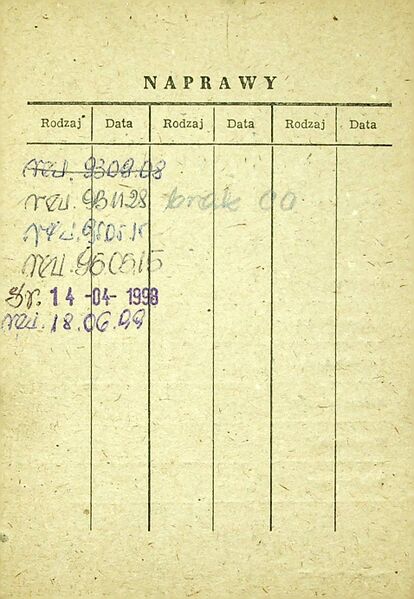 NAPRAWY
Rodzaj Data Rodzaj Data Rodzaj Data
rew. 930908
rew. 931128 brak CO
rew.
rew. 960515
Sr. 14 -04- 1998
rew. 18.06.99